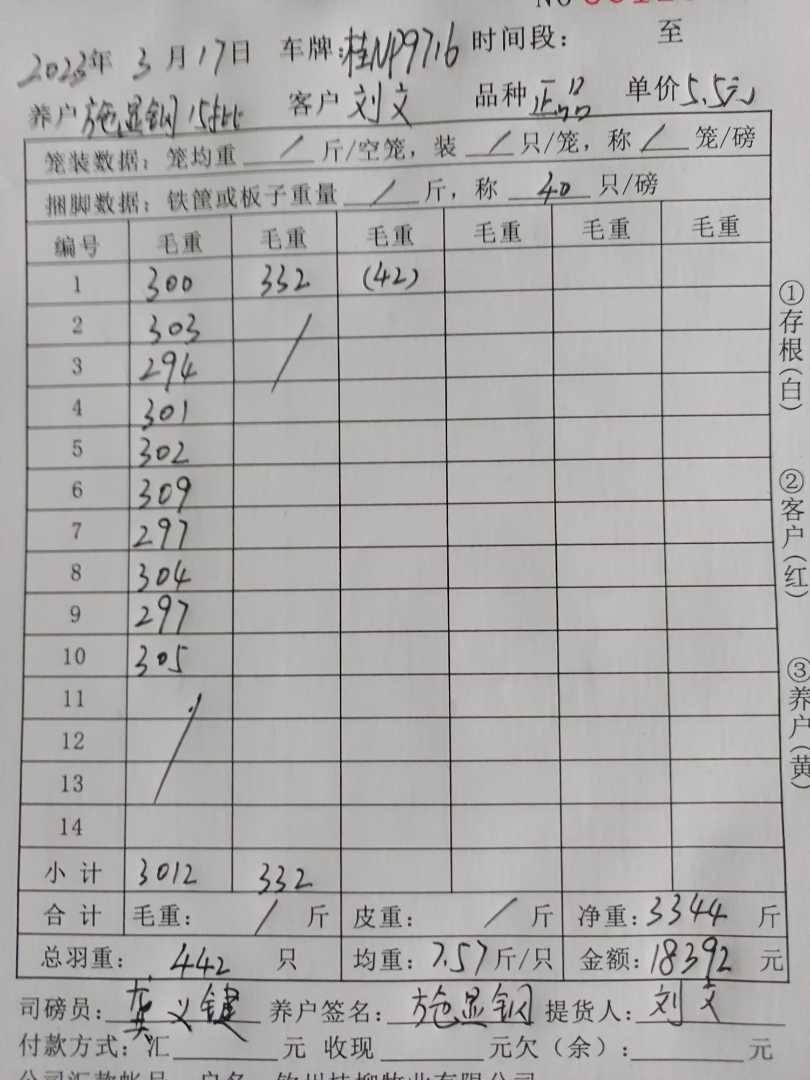 2023年 3月17日 车牌:桂NP9716 时间段: 至
养户 施显钢 15批 客户 刘文 品种 正品 单价 5.5元
笼装数据: 笼均重 / 斤/空笼, 装 / 只/笼, 称 / 笼/磅
捆脚数据: 铁筐或板子重量 / 斤, 称 40 只/磅
编号 毛重 毛重 毛重 毛重 毛重 毛重
1 300 332 (42)
2 303 /
3 294
4 301
5 302
6 309
7 297
8 304
9 297
10 305
11 /
12
13
14
小计 3012 332
合计 毛重: / 斤 皮重: / 斤 净重:3344 斤
总羽重: 442 只 均重: 7.57斤/只 金额:18392 元
司磅员: 义键 养户签名: 施显钢 提货人: 刘文
付款方式: 汇 元 收现 元欠(余): 元
①存根(白)
②客户(红)
③养户(黄)